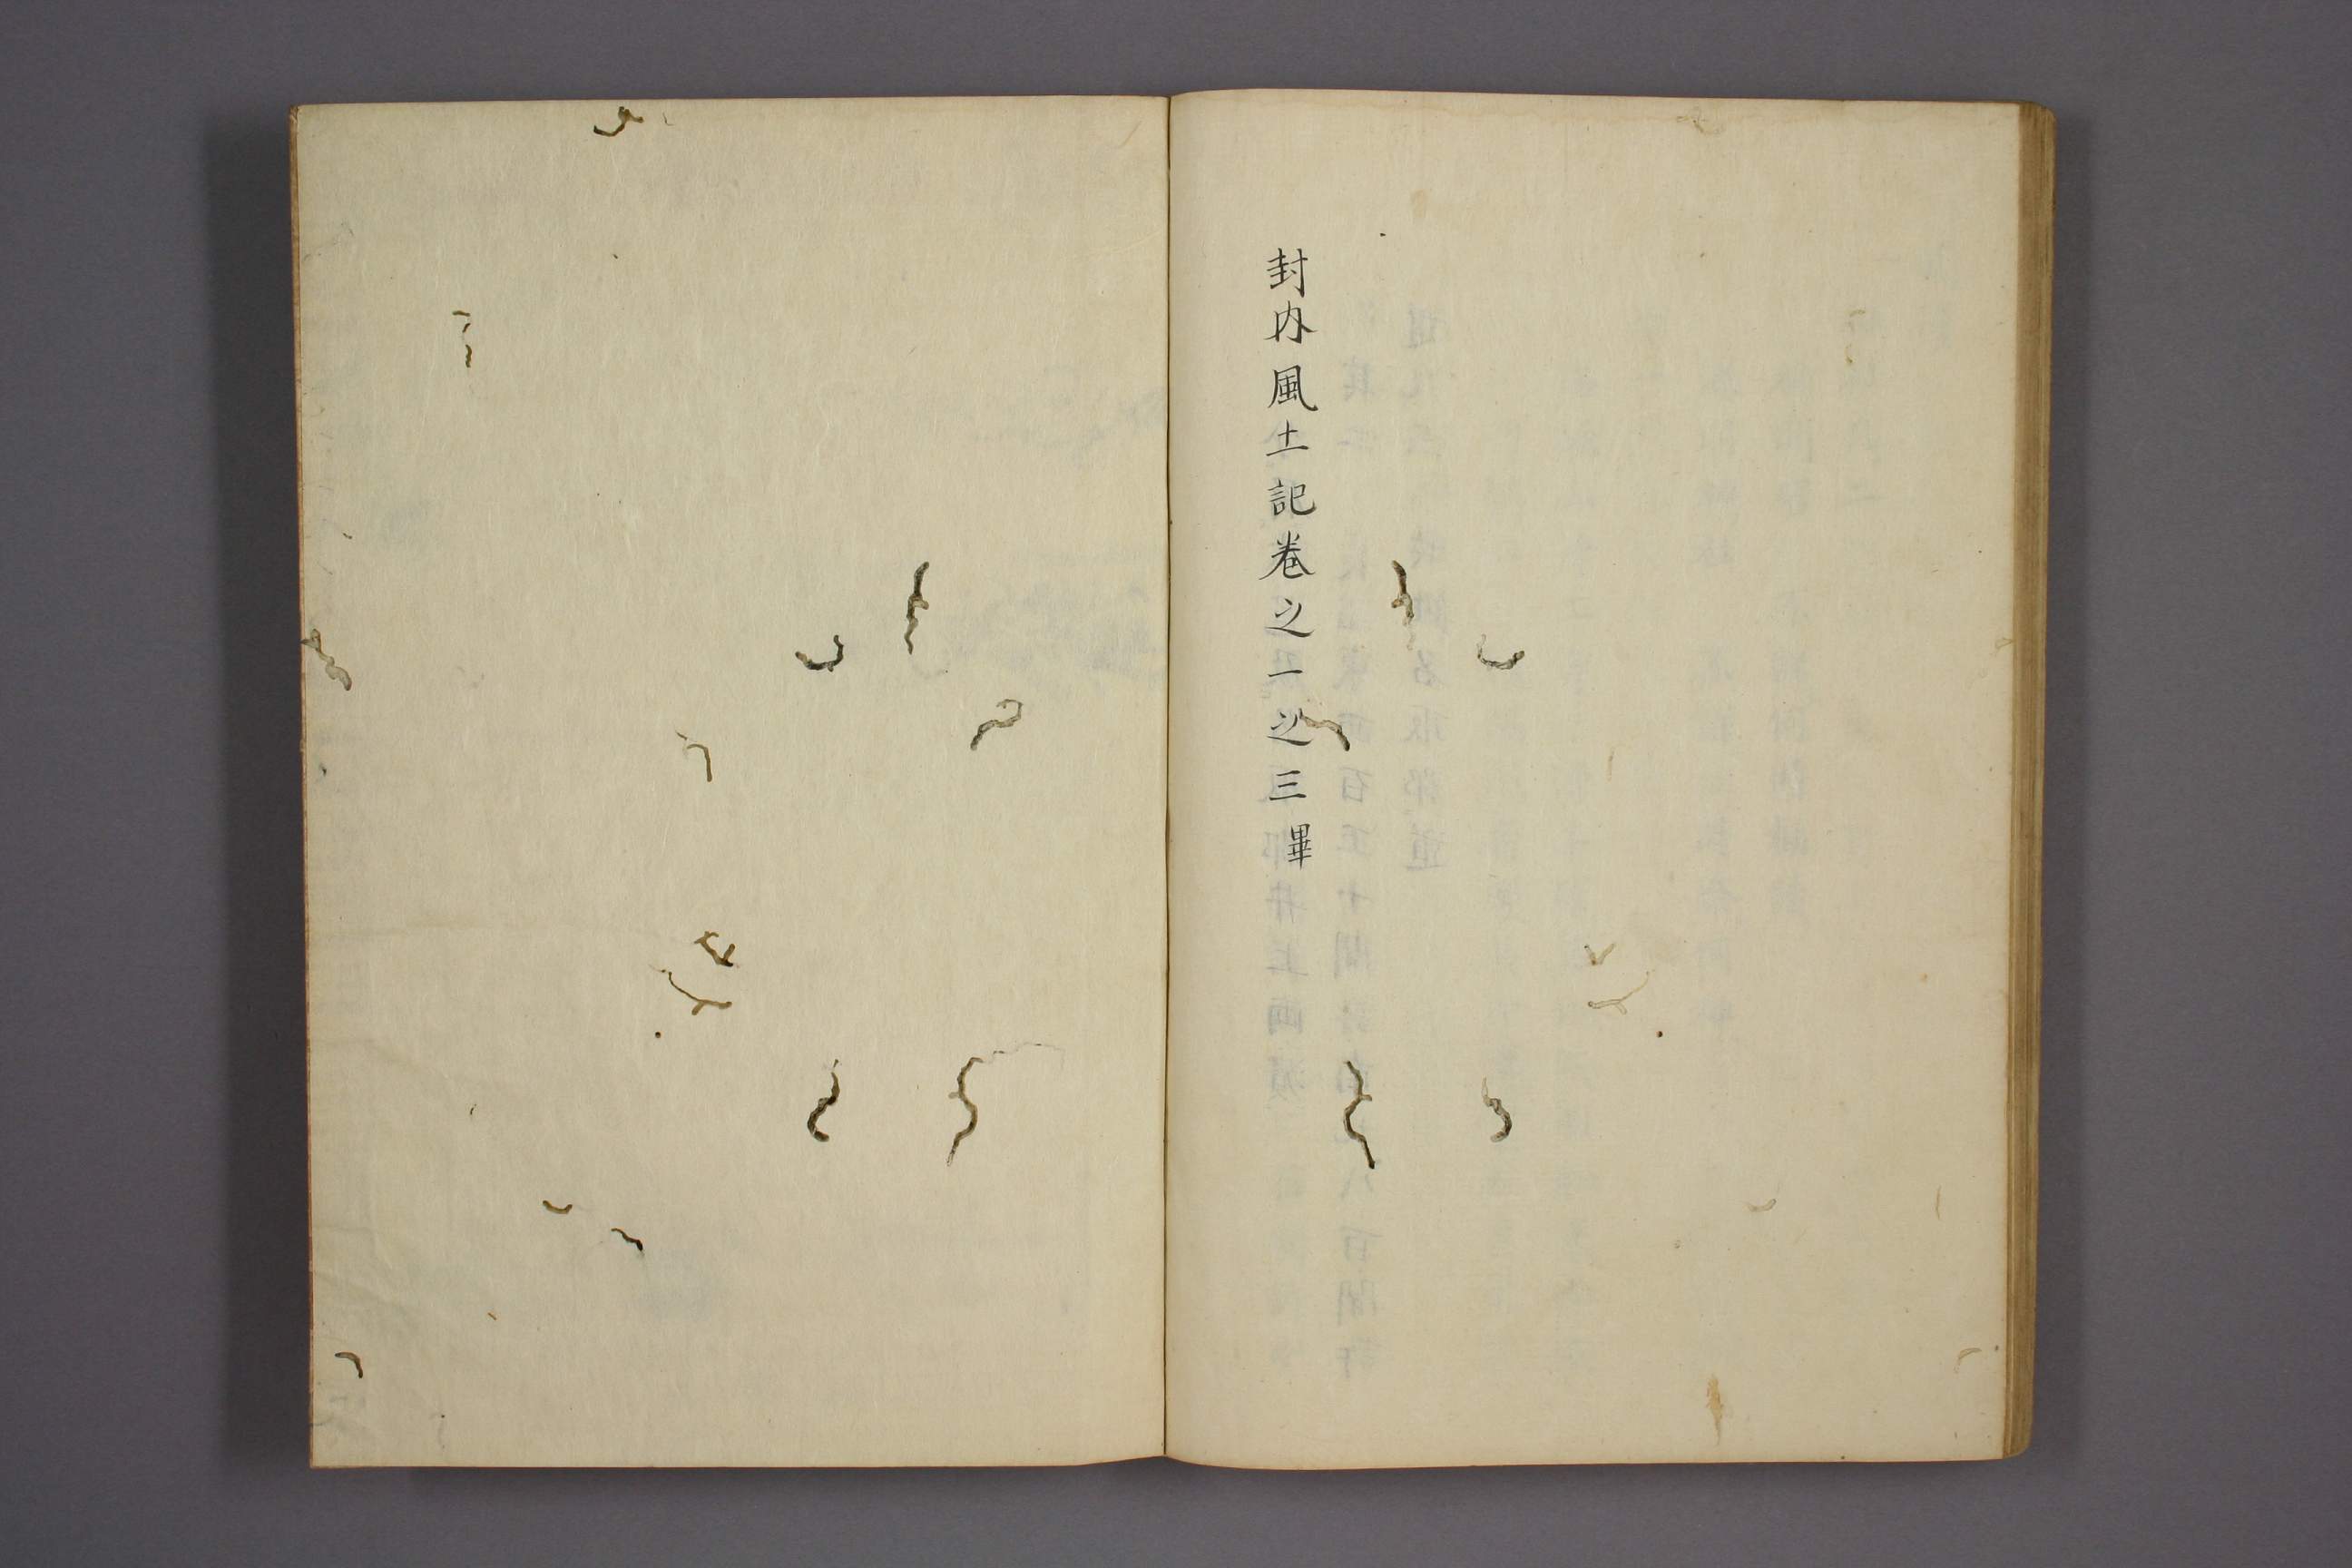 封内風土記卷之一之三畢